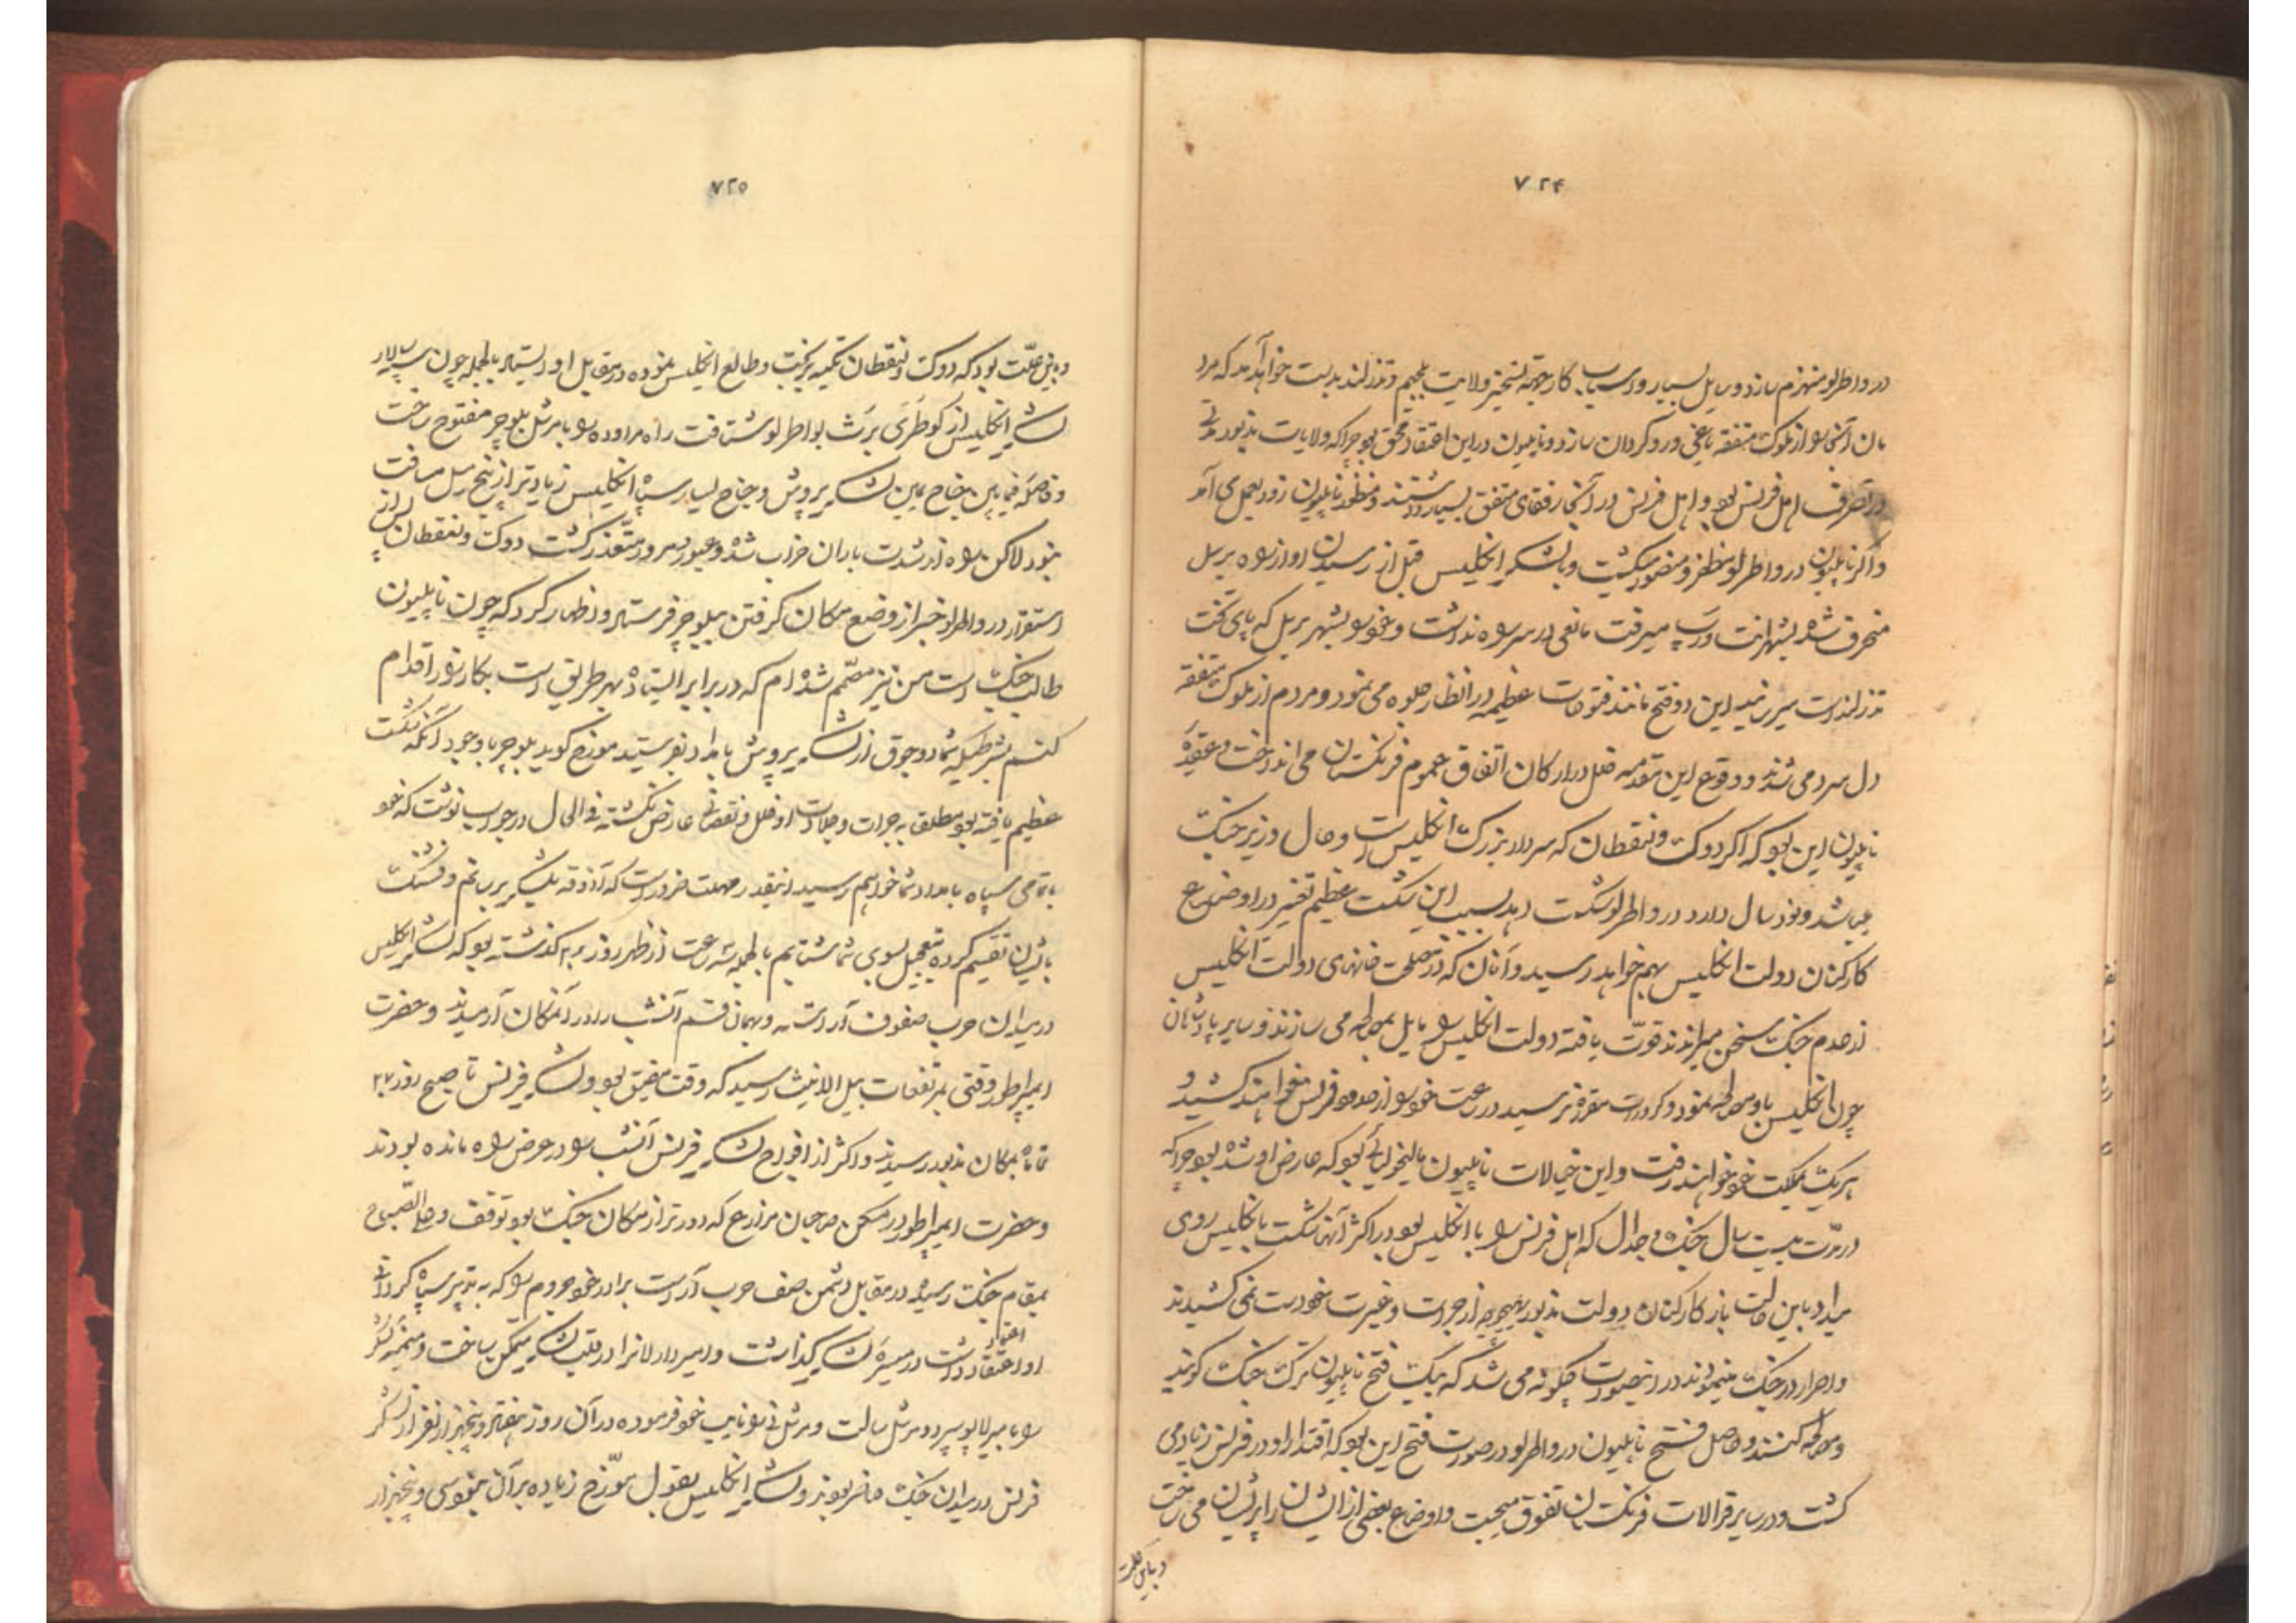 ۷۲۴
در واطرلو منهزم سازد وسایل بسیار و اسباب کار جهة تسخیر ولایت بلجیم و ندرلند بدست خواهد آمد که مردم
سان آنجا را از ملوک متفقه یاغی و روکردان سازد و ناپلیون در این اعتقاد محق بود چرا که ولایات مذبور مدتی
در تصرف اهل فرنس بود و اهل فرنس در آنجا رفقای متفق بسیار داشتند و منظور ناپلیون زود بعمل می آمد
و اکر ناپلیون در واطرلو مظفر و منصور میکشت و لشکر انکلیس قبل از رسیدن او از راه برسل
منحرف شده بشهر انت ورب میرفت مانعی در سر راه نداشت و خود را بشهر برسل که پای تخت
ندرلند است میرسانید این دو فتح مانند فتوحات عظیمه در انظار جلوه می نمود و مردم از ملوک متفقه
دل سرد می شدند و وقوع این مقدمه خلل در ارکان اتفاق عموم فرنکستان می انداخت و عقیدهٔ
ناپلیون این بود که اکر دوک ولنقطان که سردار بزرک انکلیس است و حال وزیر جنک
میباشد و نود سال دارد در واطرلو شکست دهد بسبب این شکست عظیم تغییر در اوضاع
کارکنان دولت انکلیس بهم خواهد رسید و آنان که در مصلحت خانهای دولت انکلیس
از عدم جنک سخن میرانند قوت یافته دولت انکلیس را مایل بمصالحه می سازند و سایر پادشاهان
چون انکلیس با او مصالحه نمود و کرورات مقرره نرسید در ساعت خود را از صدمه فرنس نخواهند کشید و
هر یک بمملکت خود خواهند رفت و این خیالات ناپلیون مالیخولیائی بود که عارض او شده بود چرا که
در مدت بیست سال جنک و جدال که اهل فرنس را با انکلیس بود در اکثر آنها شکست بانکلیس روی
میداد با این حالت باز کارکنان دولت مذبور بهیچوجه از جرات و غیرت خود دست نمی کشیدند
و اصرار در جنک مینمودند در اینصورت چکونه می شد که بیک فتح ناپلیون ترک جنک کویند
و مصالحه کنند و حاصل فتح ناپلیون در واطرلو در صورت فتح این بود که اقتدار او در فرنس زیاد می
کشت و در سایر قرالات فرنکستان تفوق میجست و اوضاع بعضی از ایشان را پریشان می ساخت
و باین علت
۷۲۵
و باین علت بود که دوک ولنقطان تکیه بربخت و طالع انکلیس نموده در مقابل او ایستاد بالجمله چون سپهسالار
لشکر انکلیس از کوطرَی برَث بواطرلو شتافت راه مراوده را با مرشل بلوچر مفتوح ساخت
و فاصلهٔ فیمابین جناح یمین لشکر پروش و جناح یسار سپاه انکلیس زیادتر از پنج میل مسافت
نبود لاکن راه از شدت باران خراب شده و عبور و مرور متعذر کشت دوک ولنقطان پس از
استقرار در واطرلو خبر از وضع مکان کرفتن ببلوچر فرستاد و اظهار کرد که چون ناپلیون
طالب جنک است من نیز مصمم شده ام که در برابر ایستاده بهر طریق است بکارزار اقدام
کنم بشرطیکه شما دو جوق از لشکر پروش بامداد بفرستید مورخ کوید بلوچر با وجود آنکه شکست
عظیم یافته بود مطلق بجرات و جلادت او خلل و نقصانی عارض نکشته فی الحال در جواب نوشت که خود
با تمامی سپاه بامداد شما خواهم رسید اینقدر مهلت ضرور است که آذوقه بلشکر برسانم و فشنک
بایشان تقسیم کرده بتعجیل بسوی شما شتابیم بالجمله سه ساعت از ظهر روز ۲۸ کذشته بود که لشکر انکلیس
در میدان حرب صفوف آراسته و بهمان قسم آنشب را در آنمکان آرمیدند و حضرت
ایمپراطور وقتی بمرتفعات بیل الانیث رسید که وقت مضیق بود و لشکر فرنس تا صبح روز ۲۷
تماما بمکان مذبور رسیدند و اکثر از افواج لشکر فرنس آنشب را در عرض راه مانده بودند
و حضرت ایمپراطور در مسکن صاحبان مزارع که دورتر از مکان جنک بود توقف و علی الصباح
بمقام جنک رسیده در مقابل دشمن صف حرب آراست برادر خود جروم را که به تدبیر سپاه کردانی
او اعتقاد داشت در میسرهٔ لشکر کذاشت و امیر دارلانرا در قلب لشکر متمکن ساخت و میمنه لشکر
اعتماد
را بامیر لابو سپرد و مرشل سالت و مرشل نی را نایب خود فرموده در آن روز هفتاد و پنجهزار نفر از لشکر
فرنس در میدان جنک حاضر بودند و لشکر انکلیس بقول مورخ زیاده بر آن نبود سی و پنجهزار